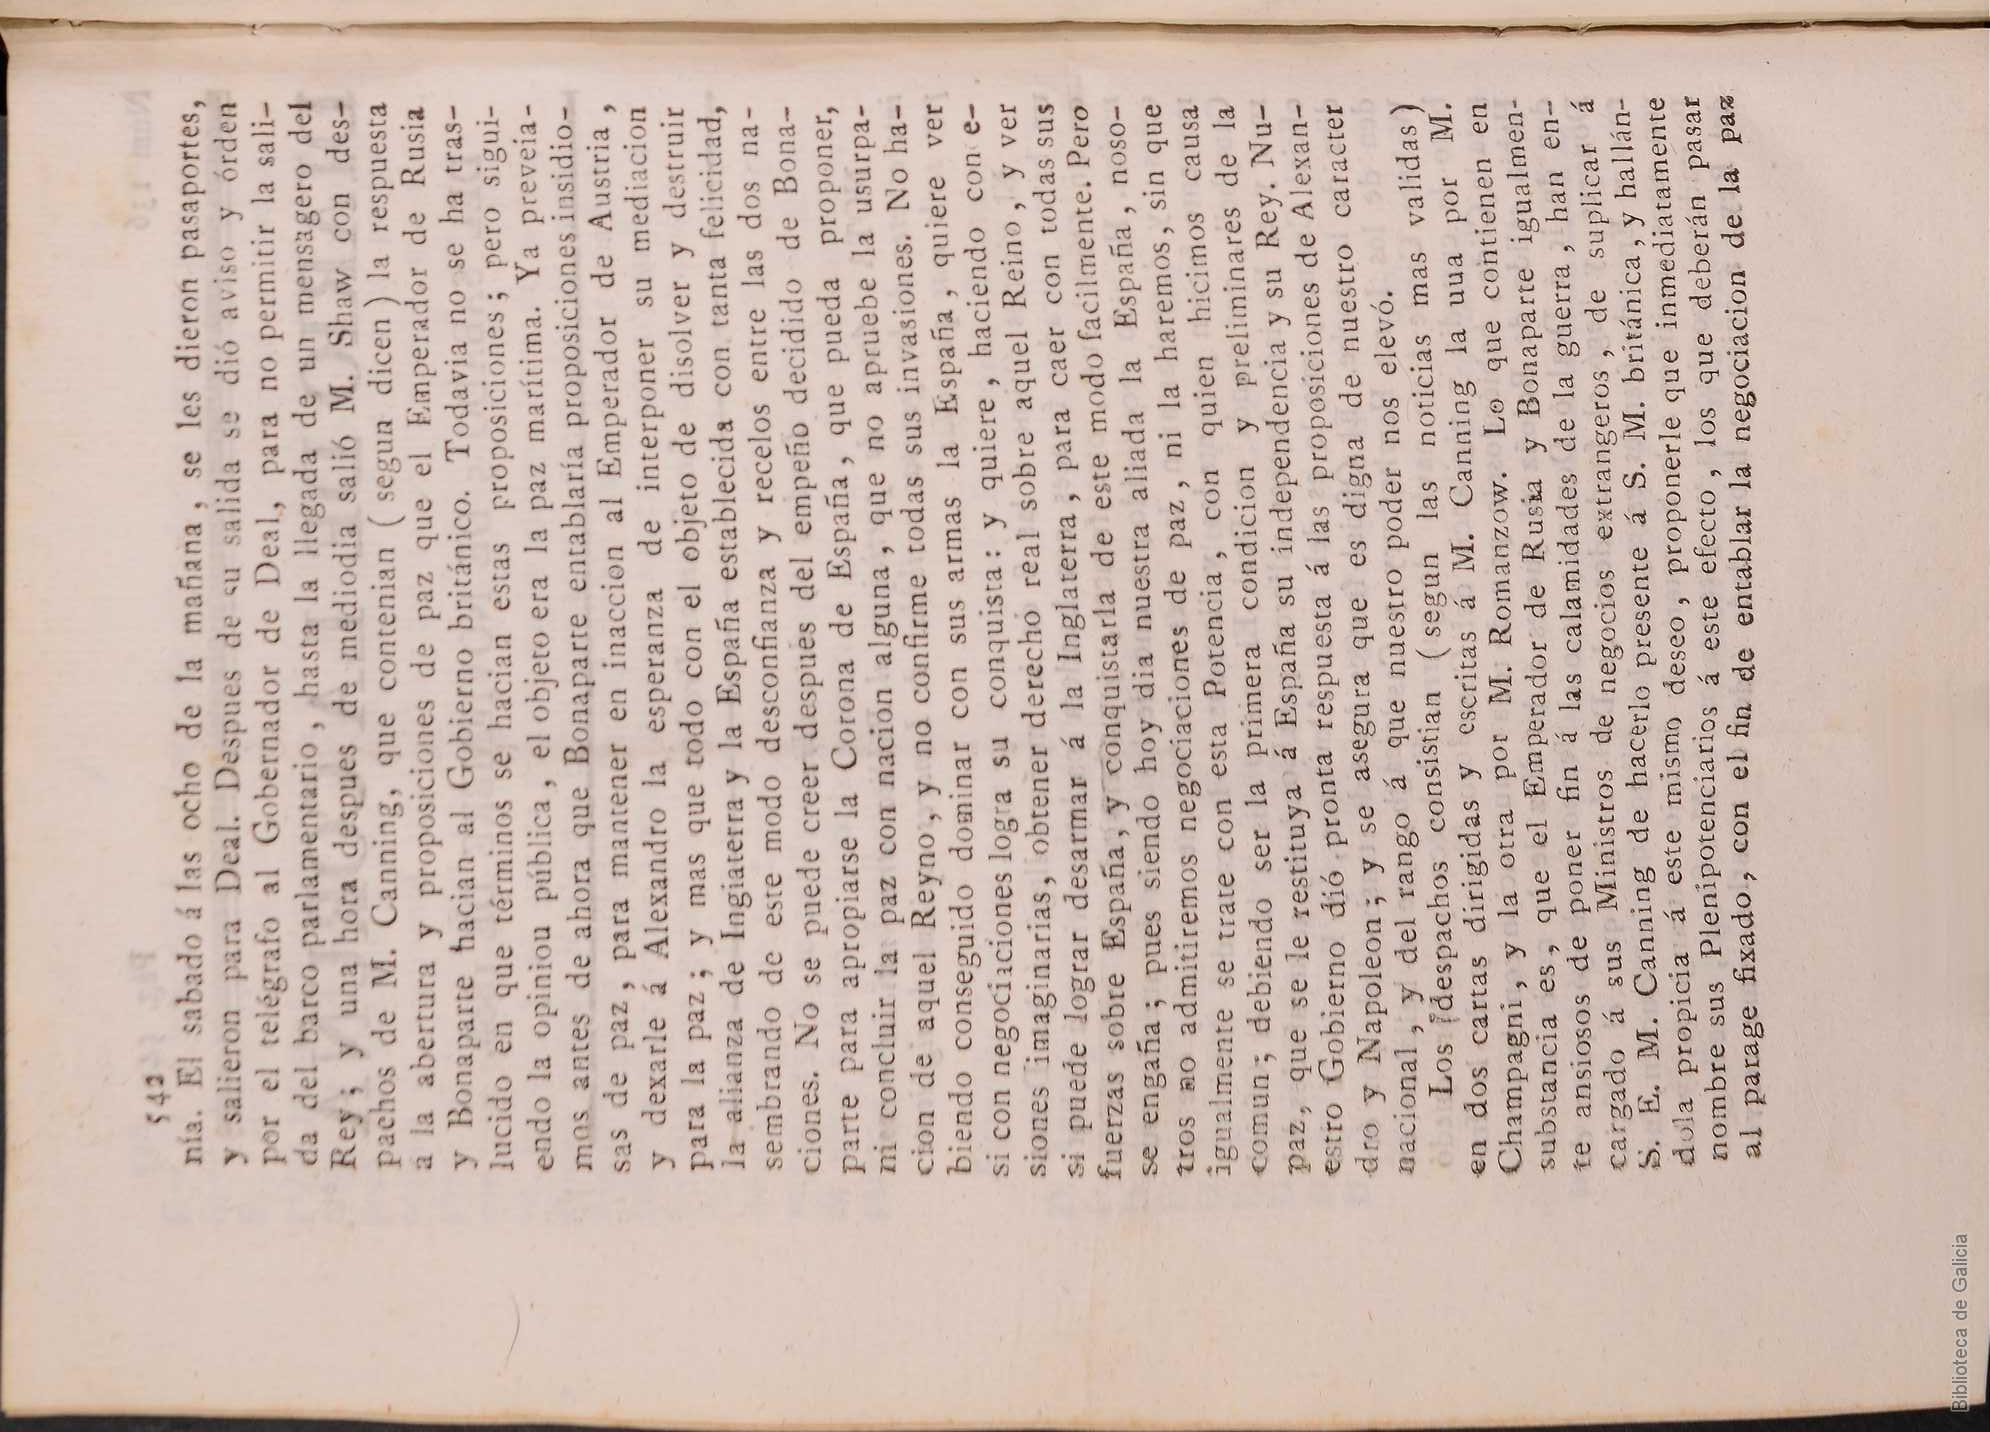 542
nía. El sabado á las ocho de la mañana, se les dieron pasaportes,
y salieron para Deal. Despues de su salida se dió aviso y órden
por el telégrafo al Gobernador de Deal, para no permitir la sali-
da del barco parlamentario, hasta la llegada de un mensagero del
Rey; y una hora despues de mediodia salió M. Shaw con des-
pachos de M. Canning, que contenian (segun dicen) la respuesta
a la abertura y proposiciones de paz que el Emperador de Rusia
y Bonaparte hacian al Gobierno británico. Todavia no se ha tras-
lucido en que términos se hacian estas proposiciones; pero sigui-
endo la opiniou pública, el objeto era la paz marítima. Ya preveia-
mos antes de ahora que Bonaparte entablaría proposiciones insidio-
sas de paz, para mantener en inaccion al Emperador de Austria,
y dexarle á Alexandro la esperanza de interponer su mediacion
para la paz; y mas que todo con el objeto de disolver y destruir
la alianza de Ingiaterra y la España establecida con tanta felicidad,
sembrando de este modo desconfianza y recelos entre las dos na-
ciones. No se puede creer despues del empeño decidido de Bona-
parte para apropiarse la Corona de España, que pueda proponer,
ni concluir la paz con nacion alguna, que no apruebe la usurpa-
cion de aquel Reyno, y no confirme todas sus invasiones. No ha-
biendo conseguido dominar con sus armas la España, quiere ver
si con negociaciones logra su conquista: y quiere, haciendo con e-
siones imaginarias, obtener derecho real sobre aquel Reino, y ver
si puede lograr desarmar á la Inglaterra, para caer con todas sus
fuerzas sobre España, y conquistarla de este modo facilmente. Pero
se engaña; pues siendo hoy dia nuestra aliada la España, noso-
tros no admitiremos negociaciones de paz, ni la haremos, sin que
igualmente se trate con esta Potencia, con quien hicimos causa
comun; debiendo ser la primera condicion y preliminares de la
paz, que se le restituya á España su independencia y su Rey. Nu-
estro Gobierno dió pronta respuesta á las proposiciones de Alexan-
dro y Napoleon; y se asegura que es digna de nuestro caracter
nacional, y del rango á que nuestro poder nos elevó.
Los despachos consistian (segun las noticias mas validas)
en dos cartas dirigidas y escritas á M. Canning la uua por M.
Champagni, y la otra por M. Romanzow. Lo que contienen en
substancia es, que el Emperador de Rusia y Bonaparte igualmen-
te ansiosos de poner fin á las calamidades de la guerra, han en-
cargado á sus Ministros de negocios extrangeros, de suplicar á
S. E. M. Canning de hacerlo presente á S. M. británica, y hallán-
dola propicia á este mismo deseo, proponerle que inmediatamente
nombre sus Plenipotenciarios á este efecto, los que deberán pasar
al parage fixado, con el fin de entablar la negociacion de la paz
Biblioteca de Galicia